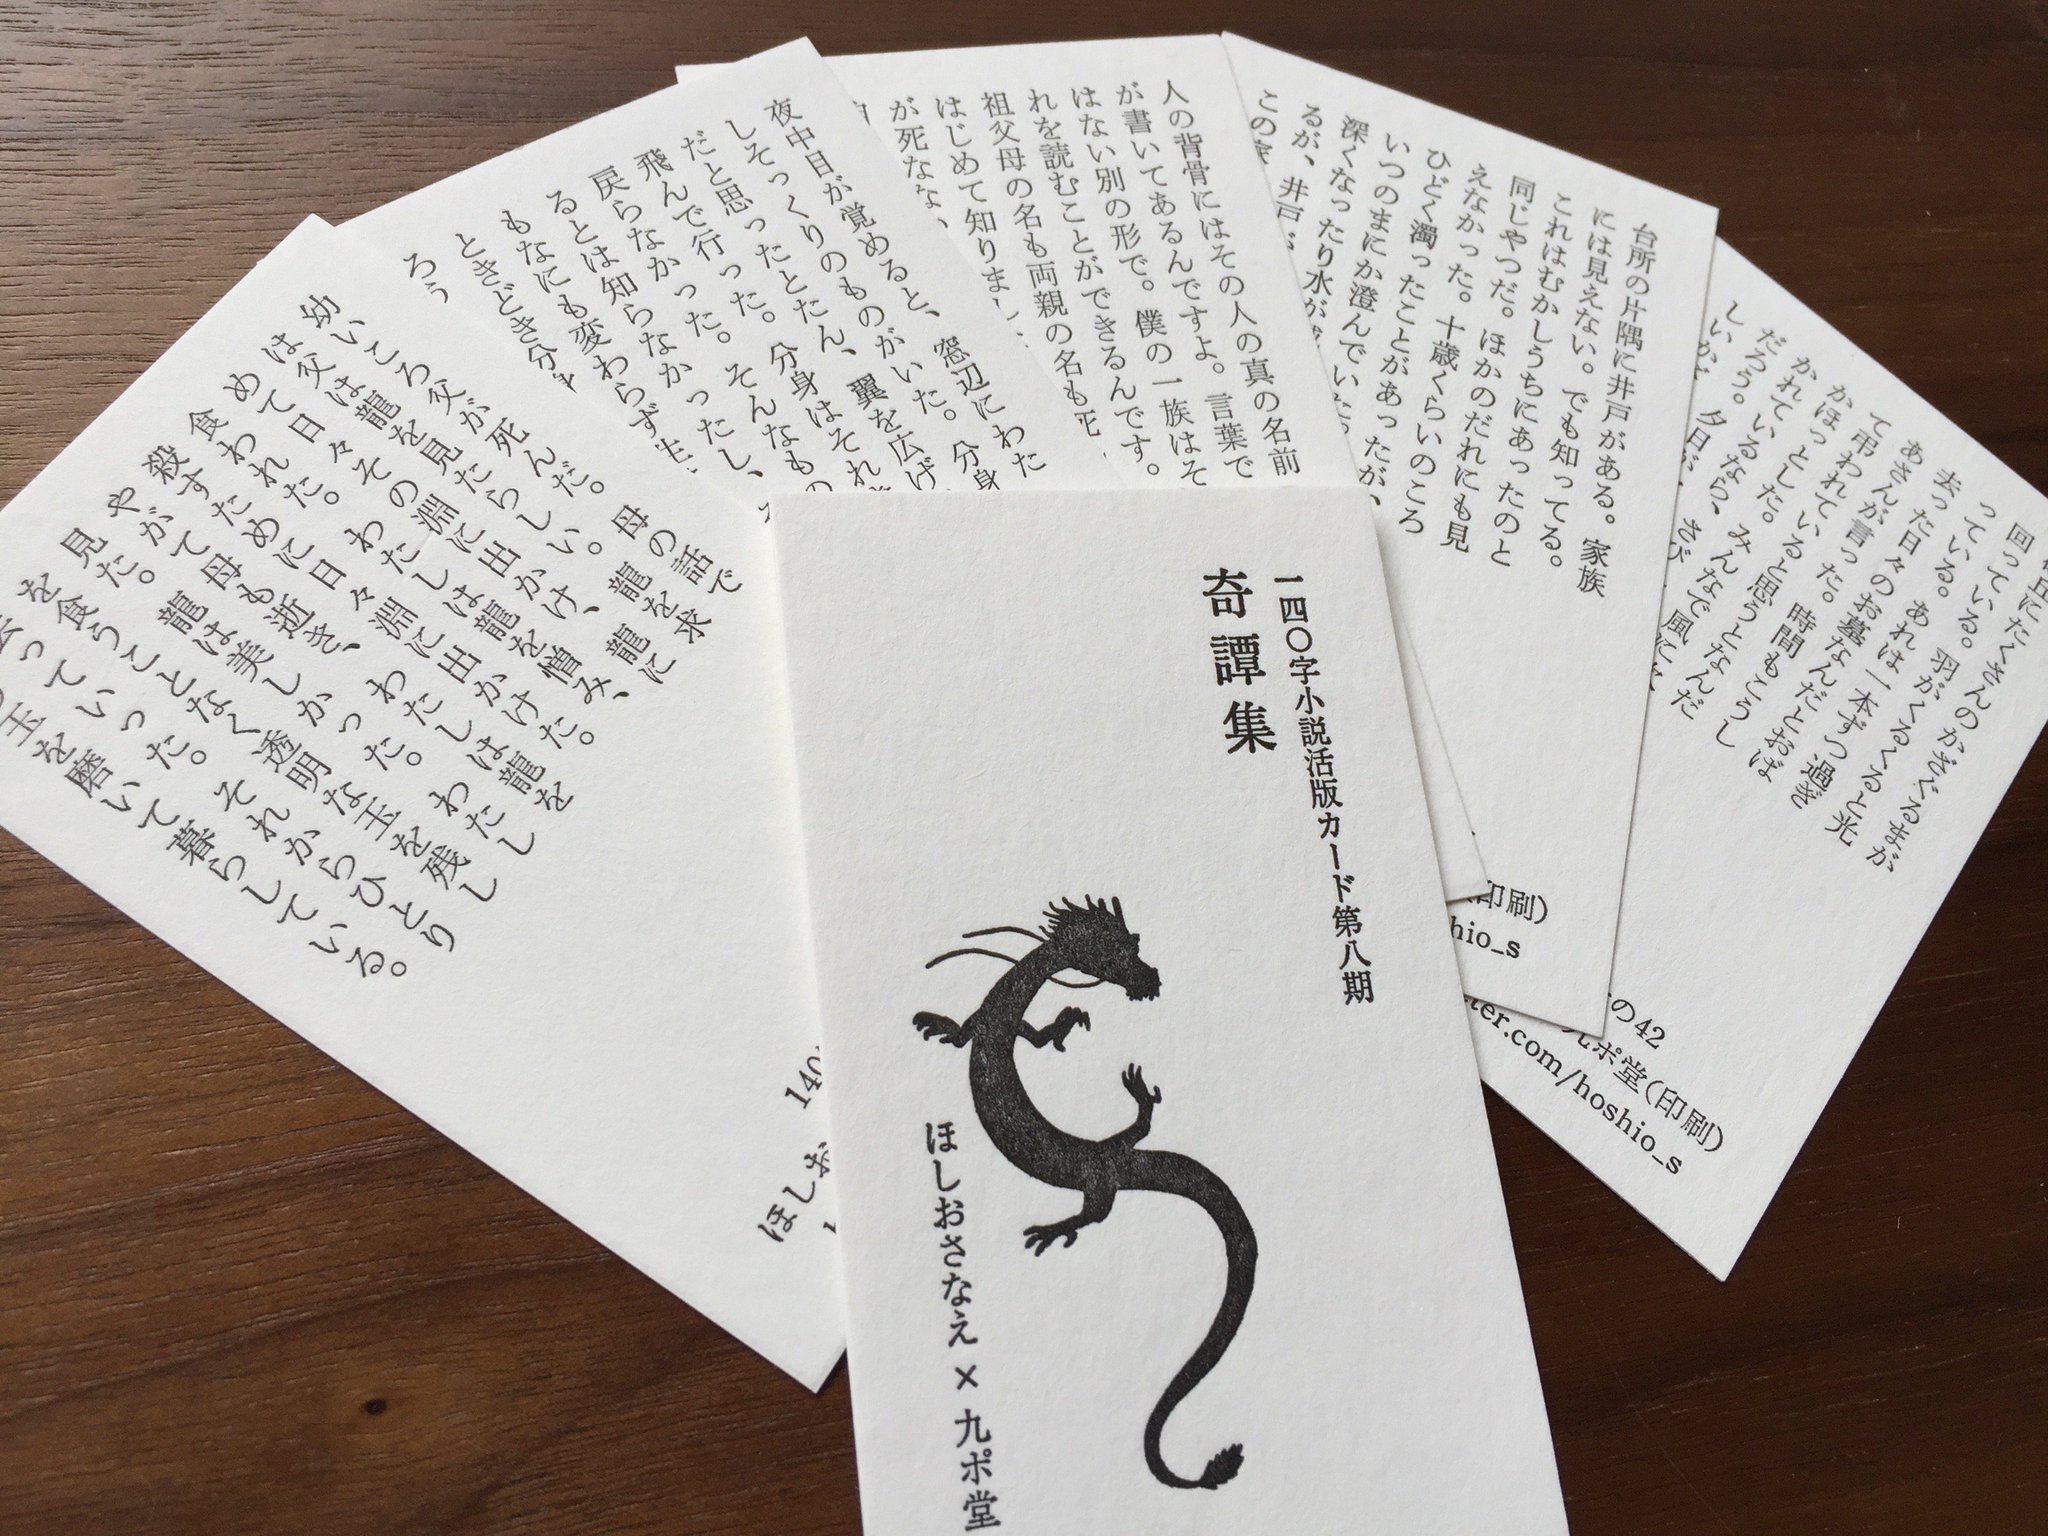 一四〇字小説活版カード第八期
奇譚集
ほしおさなえ×九ポ堂
幼いころ父が死んだ。母の話で
は父は龍を見たらしい。龍を求
めて日々その淵に出かけ、龍に
食われた。わたしは龍を憎み、
殺すために日々淵に出かけた。
やがて母も逝き、わたしは龍を
見た。龍は美しかった。わたし
を食うことなく透明な玉を残し
去っていった。それからひとり
玉を磨いて暮らしている。
140
ほしお
夜中目が覚めると、窓辺にわた
しそっくりのものがいた。分身
だと思ったとたん、翼を広げ
飛んで行った。分身はそれ
戻らなかった。そんなもの
るとは知らなかったし、
もなにも変わらず生
ときどき分身
ろう
人の背骨にはその人の真の名前
が書いてあるんですよ。言葉で
はない別の形で。僕の一族はそ
れを読むことができるんです。
祖父母の名も両親の名も死
はじめて知りまし
が死なない
台所の片隅に井戸がある。家族
には見えない。でも知ってる。
これはむかしうちにあったのと
同じやつだ。ほかのだれにも見
えなかった。十歳くらいのころ
ひどく濁ったことがあったが、
いつのまにか澄んでいた
深くなったり水が
るが、井戸が
この家
印刷）
hio_s
丘にたくさんのかざぐるまが
回っている。羽がくるくると光
っている。あれは一本ずつ過ぎ
去った日々のお墓なんだとおば
あさんが言った。時間もこうし
て弔われていると思うとなんだ
かほっとした。
かれているなら、みんなで風に
だろう。夕日が
しいかど
の42
九ポ堂（印刷）
ter.com/hoshio_s